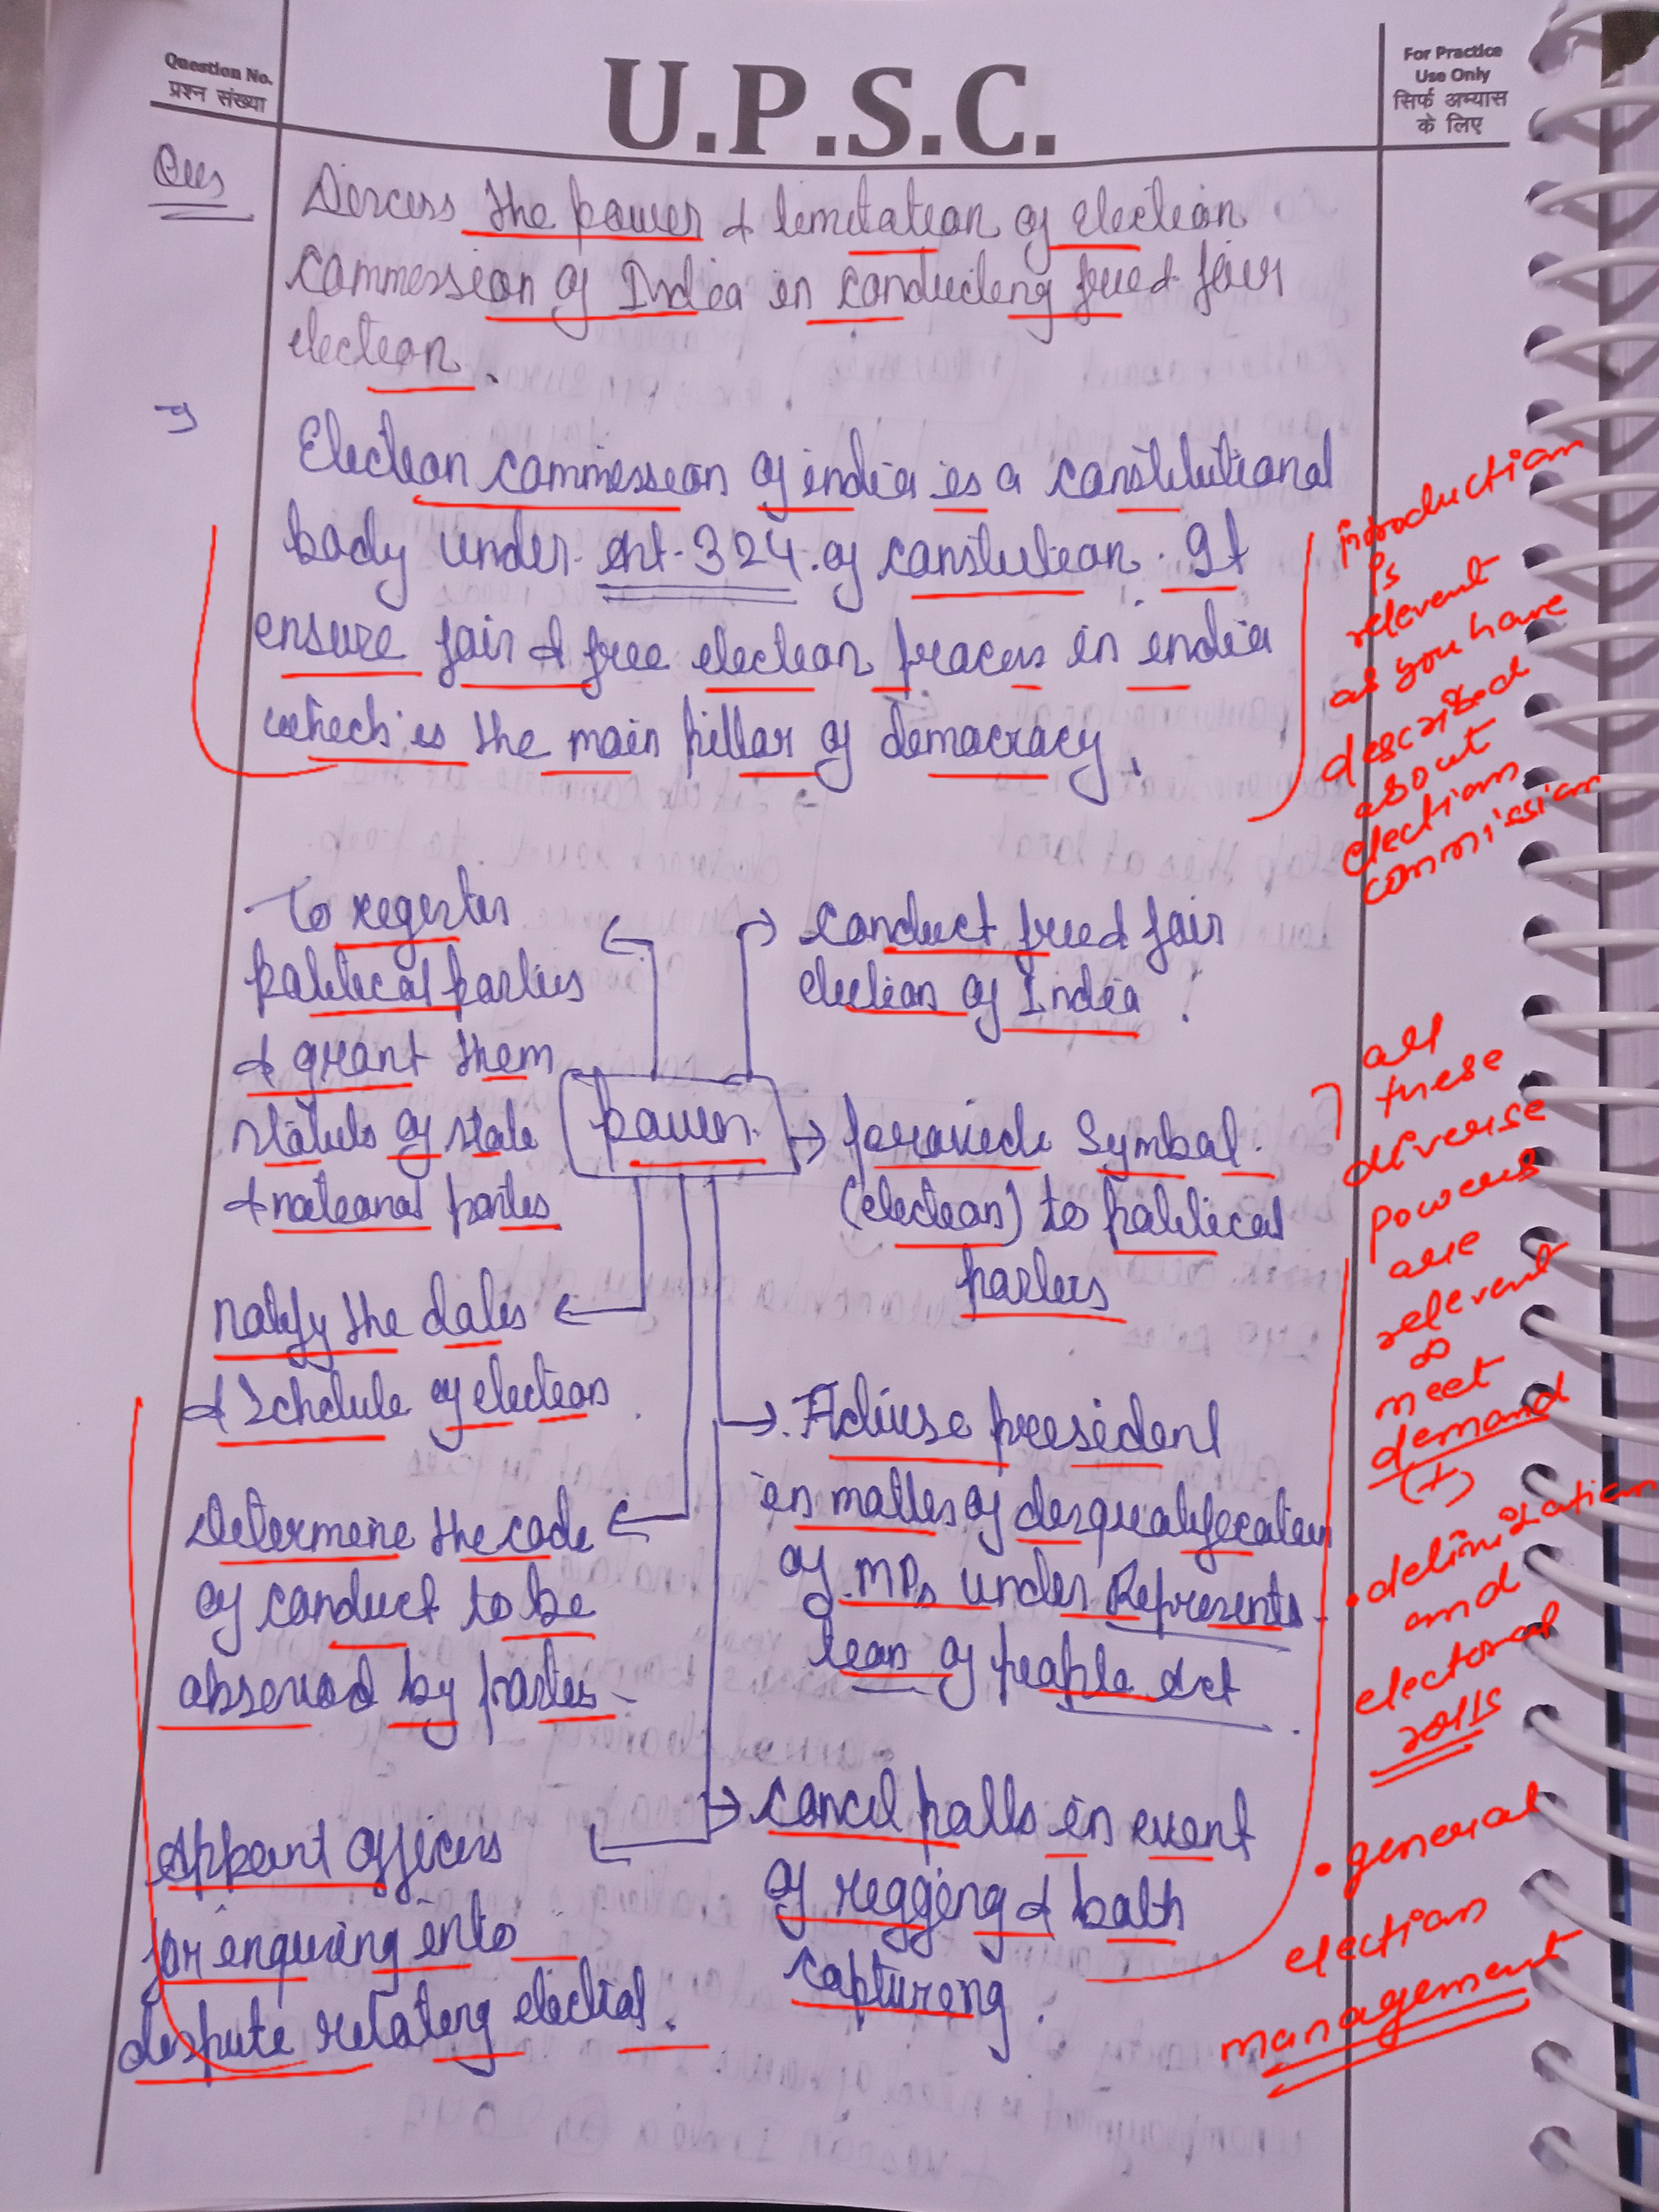 Question No.
प्रश्न संख्या
U.P.S.C.
For Practice
Use Only
सिर्फ अभ्यास
के लिए
Ques
Discuss the power & limitation of election
commission of India in conducting free & fair
election.
Election commission of india is a constitutional
body under Art. 324 of constitution. It
ensure fair & free election process in india
which is the main pillar of democracy.
introduction
is
relevent
as you have
described
about
election
commission
To register
political parties
& grant them
status of state
& national parties
conduct free & fair
election of India.
power
provide symbol
(election) to political
parties
notify the dates
& schdule of election.
Advise president
in matters of disqualification
of MPs under Represents-
tion of people Act.
Determine the code
of conduct to be
observed by parties
Appoint officers
for enquring into
dispute relating election.
cancel polls in event
of rigging & both
capturing.
all
these
diverse
powers
are
relevent
meet
demand
(+)
• delimitation
and
electoral
rolls
• general
election
management